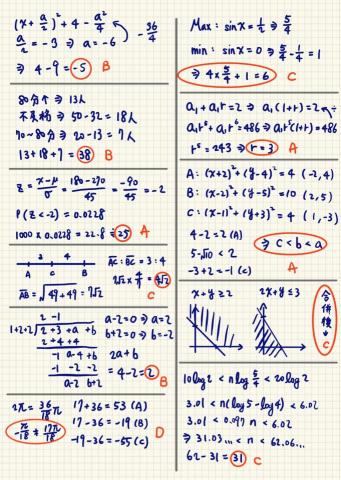 (x+a/2)²+4-a²/4
-36/4
a/2=-3 ⇒ a=-6
⇒ 4-9=-5 B
80分↑ ⇒ 13人
不及格 ⇒ 50-32=18人
70~80分 ⇒ 20-13=7人
13+18+7=38 B
z=x-μ/σ=180-270/45=-90/45=-2
P(z<-2)=0.0228
1000×0.0228=22.8≑25 A
2 4
A C B
AC:BC=3:4
AB=√49+49=7√2
C
2 -1
1+2+2√2+3+a+b
2+4+4
-1 a-4+b
-1 -2 -2
a-2 b+2
a-2=0⇒a=2
b+2=0⇒b=-2
2a+b
=4-2=2
B
2π=36/18π
17+36=53 (A)
17-36=-19 (B)
-19-36=-55 (C)
D
Max: sinx=1/2 ⇒ 5/4
min: sinx=0 ⇒ 5/4-1/4=1
⇒ 4×5/4+1=6 C
a₁+a₁r=2 ⇒ a₁(1+r)=2
a₁r⁵+a₁r⁶=486⇒a₁r⁵(1+r)=486
r⁵=243 ⇒ r=3 A
A: (x+2)²+(y-4)²=4 (-2,4)
B: (x-2)²+(y-5)²=10 (2,5)
C: (x-1)²+(y+3)²=4 (1,-3)
4-2=2 (A)
5-√10<2
-3+2=-1 (C)
⇒ c<b<a
A
x+y≥2
2x+y≤3
合併後⇓C
10log2 < nlog5/4 < 20log2
3.01 < n(log5-log4) < 6.02
3.01 < 0.097n < 6.02
⇒ 31.03... < n < 62.06...
62-31=31 C